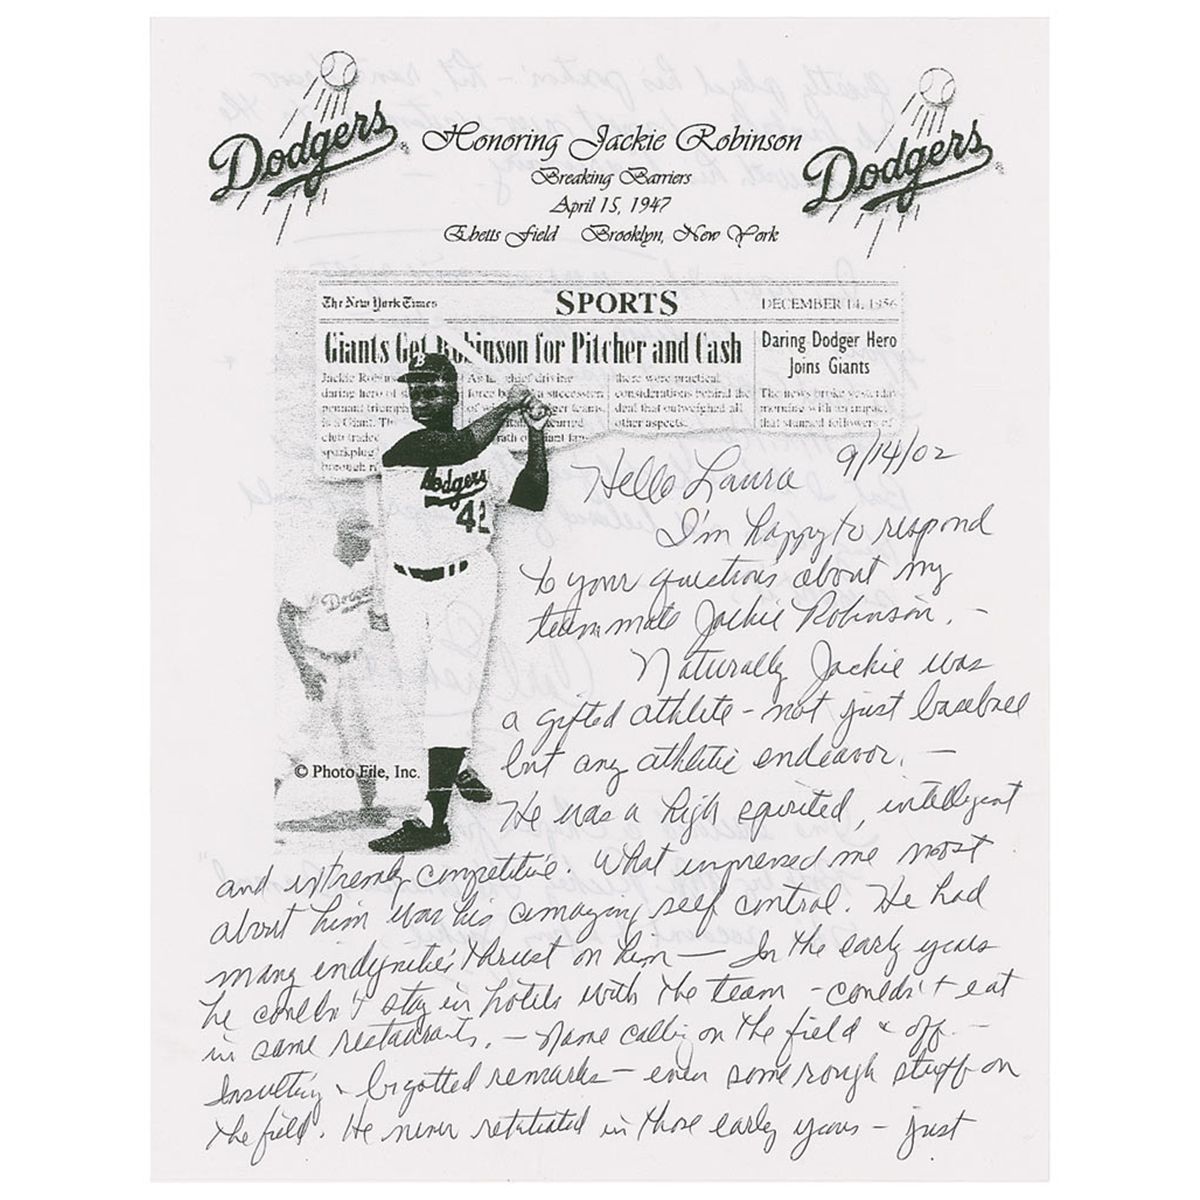 Dodgers
Dodgers
Honoring Jackie Robinson
Breaking Barriers
April 15, 1947
Ebetts Field Brooklyn, New York
The New York Times
SPORTS
DECEMBER 14, 1956
Giants Get Robinson for Pitcher and Cash
Daring Dodger Hero
Joins Giants
Jackie Robins
daring hero of
pennant triumph
is a Giant. Th
club traded
sparkplug
borough r
As the chief driving
force b a succession
of ger teams,
curred
rath o iant fan
there were practical
considerations behind the
deal that outweighed all
other aspects.
The news broke yesterday
morning with an impact
that stunned followers of
B
Dodgers
42
Dodge
© Photo File, Inc.
9/14/02
Hello Laura
I'm happy to respond
to your questions about my
teammate Jackie Robinson. -
Naturally Jackie was
a gifted athlete - not just baseball
but any athletic endeavor. -
He was a high spirited, intelligent
and extremely competitive. What impressed me most
about him was his amazing self control. He had
many indignities thrust on him - In the early years
he couldn't stay in hotels with the team - couldn't eat
in same restaurants. - Name calling on the field & off. -
Insulting & bigotted remarks - even some rough stuff on
the field. He never retaliated in those early years - just